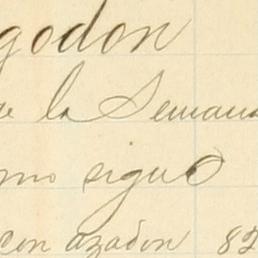 godon
de la Semana
mo sigue
con azadon 82